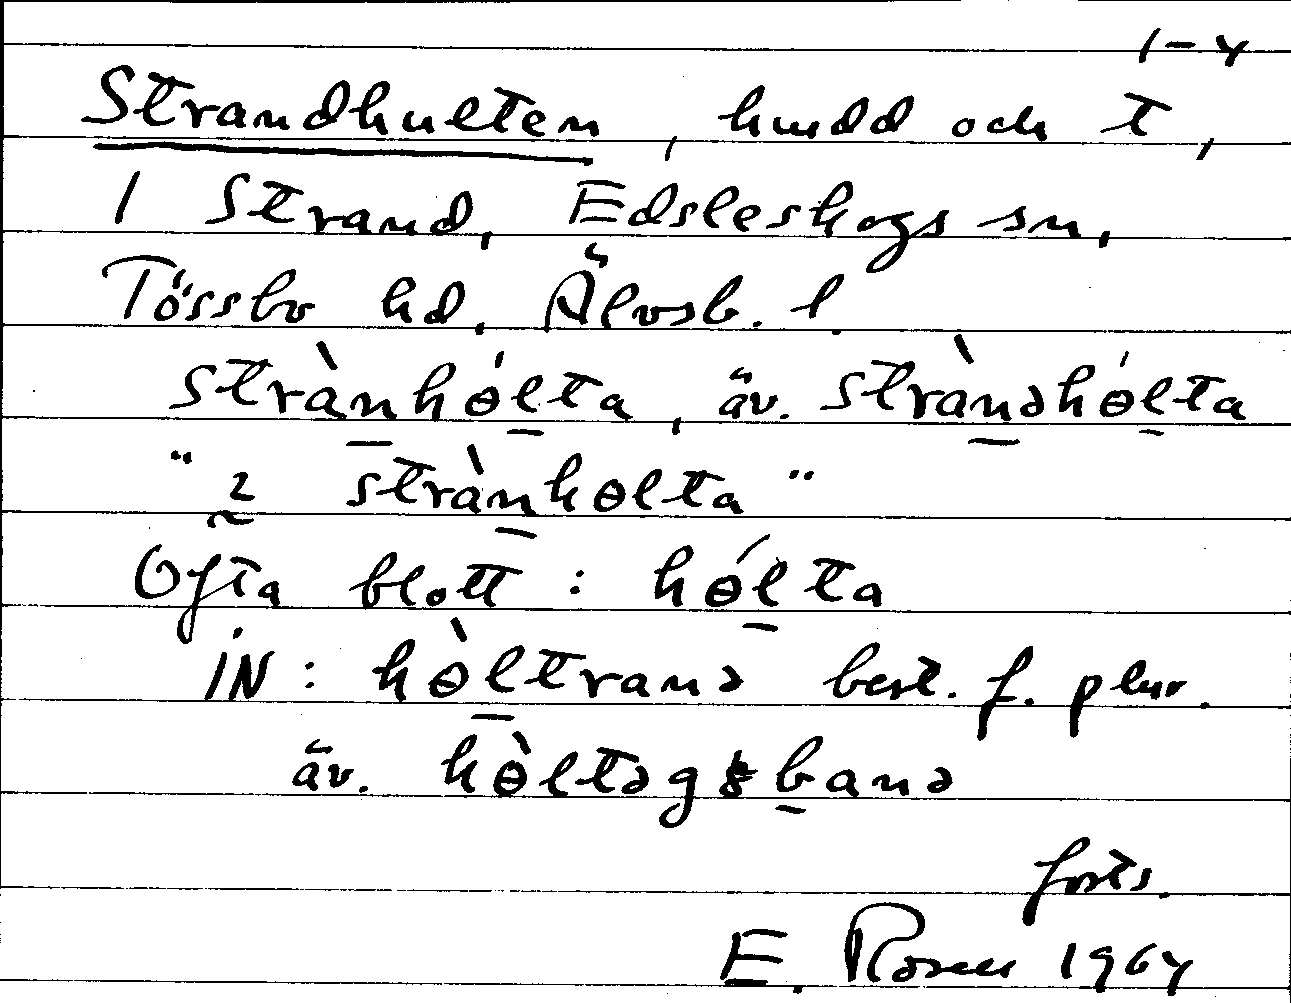 1-4
Strandhulten, hmdd och t,
1 Strand, Edsleskogs sn,
Tössbo hd, Älvsb. l.
strànhɵ́lta, äv. stràndhɵ́lta
"2 strànhɵlta"
Ofta blott : hɵ́lta
iN : hɵ̀ltranə best. f. plur.
äv. hɵ̀ltəgsbanə
forts.
E. Rosell 1964